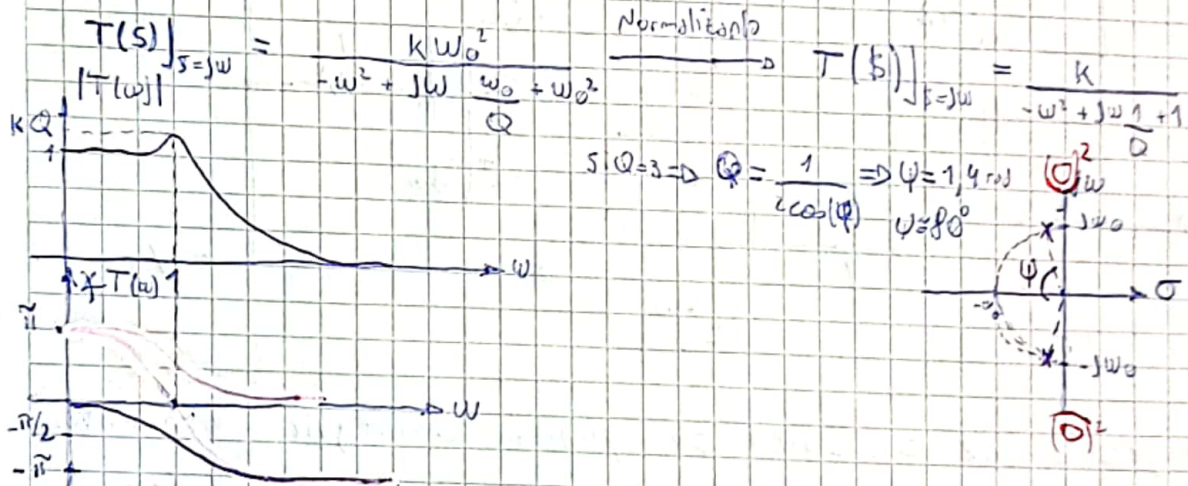 T(S)]s=jω = kω₀² / (-ω² + jω ω₀/Q + ω₀²) Normalizando → T($)]s=jω = k / (-ω² + jω 1/Q + 1)
|T(ω)|
kQ
1
ω
Si Q=3 => Q = 1 / (2cos(ψ)) => ψ=1,4 rad
ψ≈80°
∡T(ω) 1
π
ω
-π/2
-π
(O)²
jω
jω₀
ψ
σ
-jω₀
(O)²